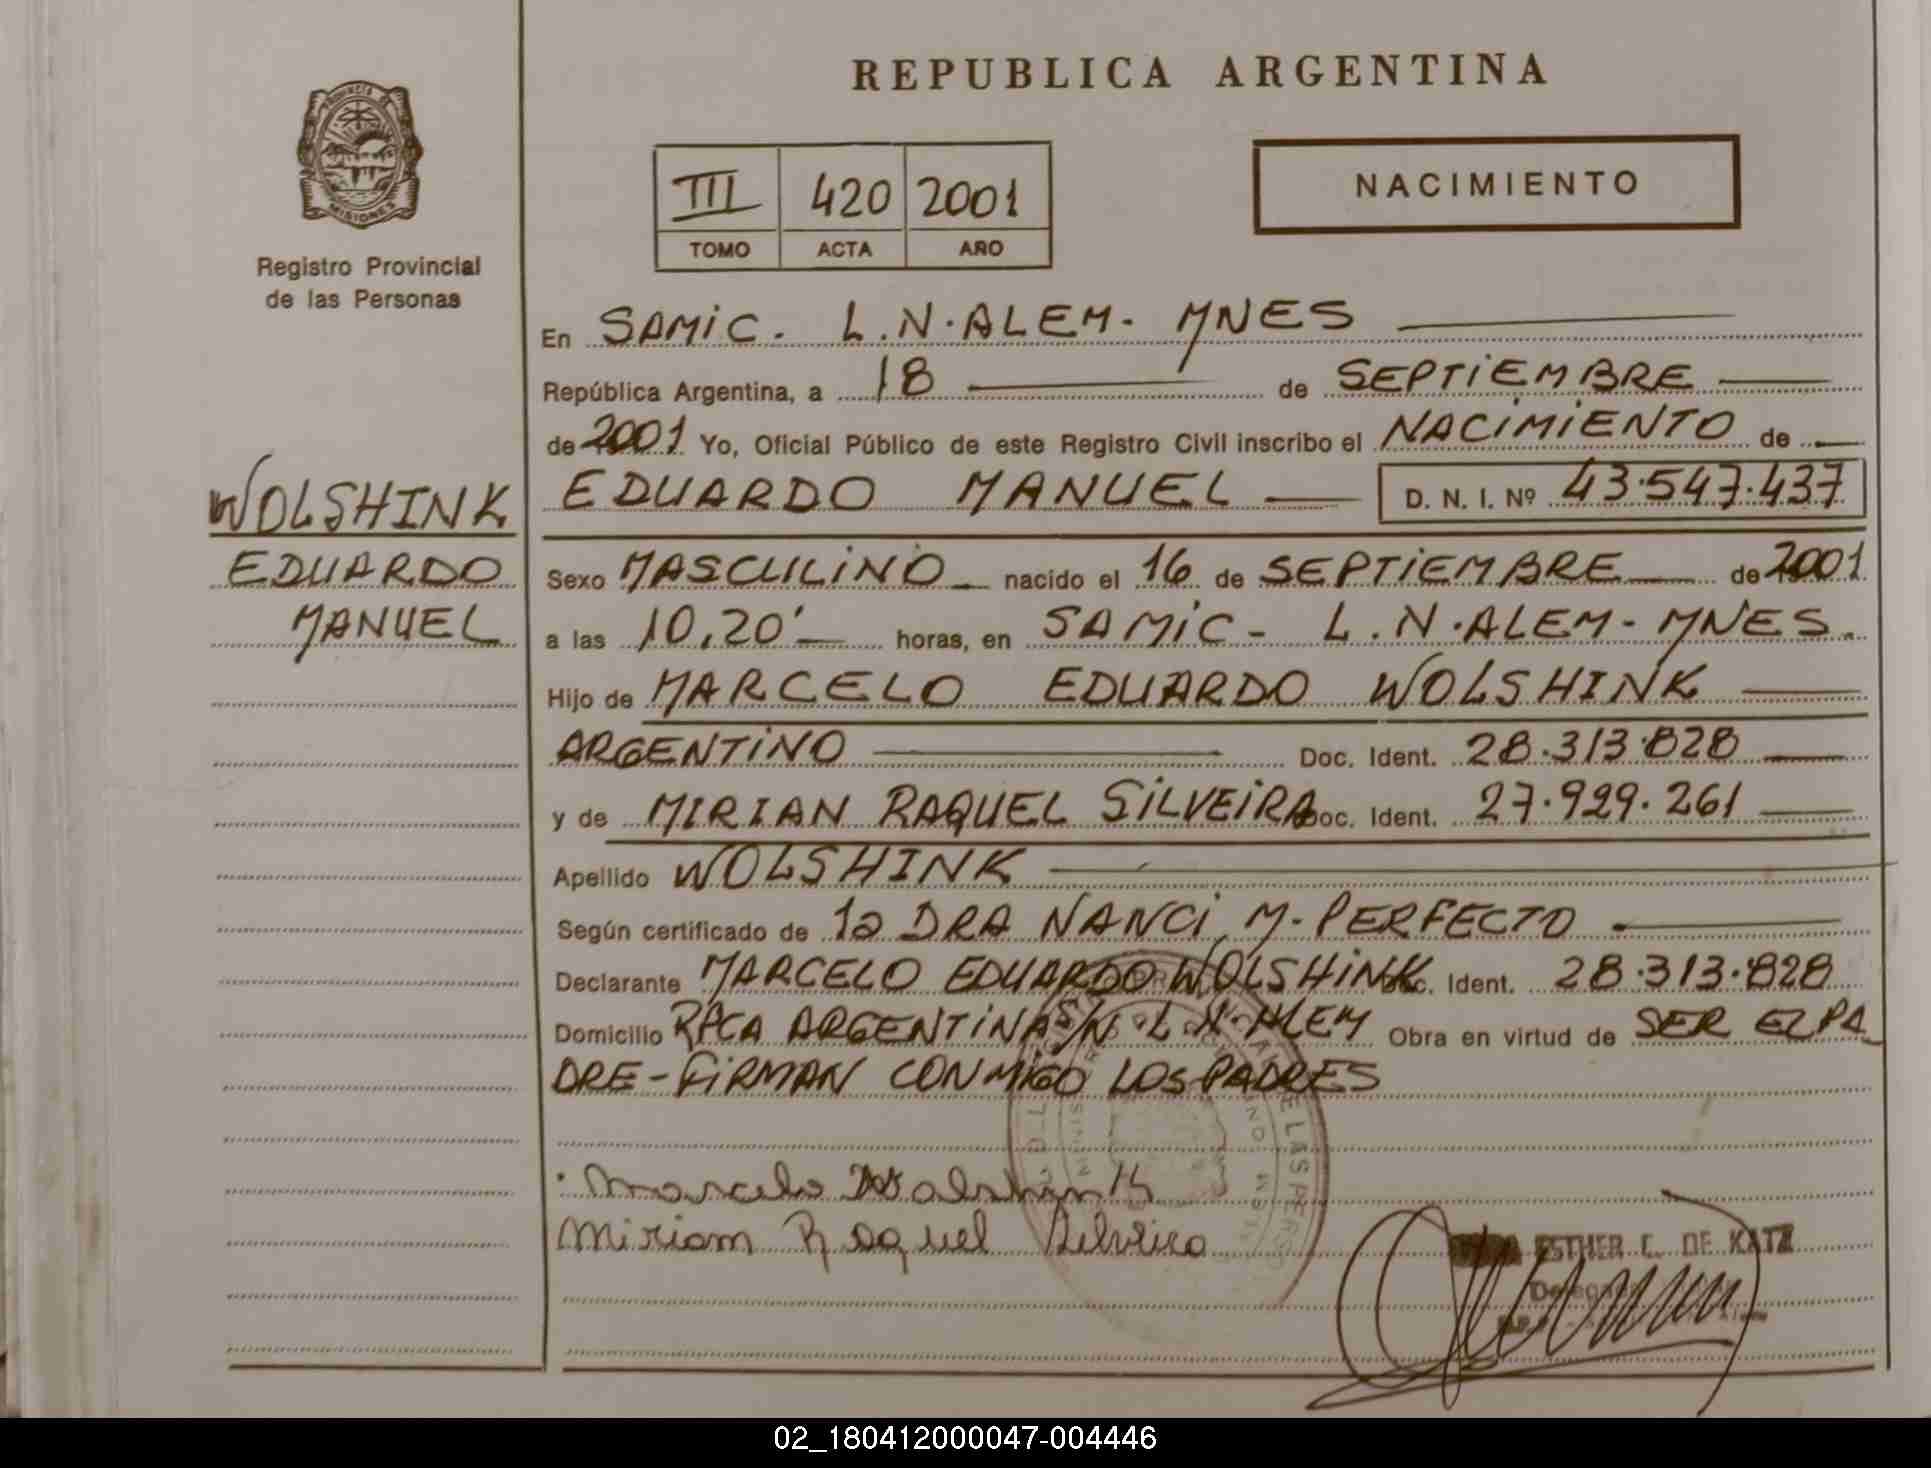 REPUBLICA ARGENTINA
PROVINCIA DE
MISIONES
Registro Provincial
de las Personas
III 420 2001
TOMO ACTA AÑO
NACIMIENTO
En SAMIC. L.N.ALEM. MNES
República Argentina, a 18 de SEPTIEMBRE
de 2001 Yo, Oficial Público de este Registro Civil inscribo el NACIMIENTO de
EDUARDO MANUEL D. N. I. Nº 43.547.437
WOLSHINK
EDUARDO
MANUEL
Sexo MASCULINO nacido el 16 de SEPTIEMBRE de 2001
a las 10,20' horas, en SAMIC - L.N.ALEM - MNES.
Hijo de MARCELO EDUARDO WOLSHINK
ARGENTINO Doc. Ident. 28.313.828
y de MIRIAN RAQUEL SILVEIRA Doc. Ident. 27.929.261
Apellido WOLSHINK
Según certificado de la DRA NANCI M. PERFECTO
Declarante MARCELO EDUARDO WOLSHINK Doc. Ident. 28.313.828
Domicilio RPCA ARGENTINA S/N L.N.ALEM Obra en virtud de SER EL PA
DRE - FIRMAN CONMIGO LOS PADRES
Marcelo Wolshink
Miriam Raquel Silveira
ESTHER C. DE KATZ
Delegada
02_180412000047-004446